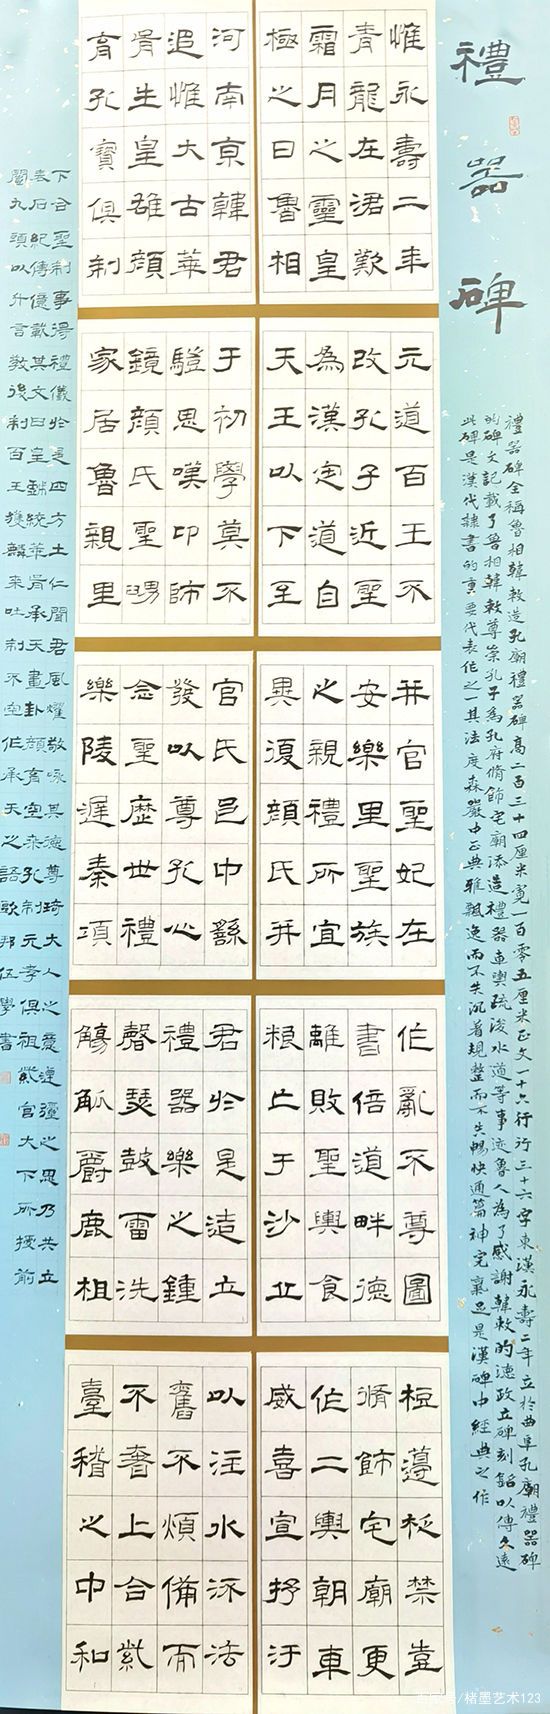 禮器碑
禮器碑全稱魯相韓敕造孔廟禮器碑高二百三十四厘米寬一百零五厘米正文一十六行行三十六字東漢永壽二年立於曲阜孔廟禮器碑
的碑文記載了魯相韓敕尊崇孔子為孔府脩飾宅廟添造禮器車輿疏浚水道等事迹魯人為了感謝韓敕的德政立碑刻銘以傳久遠
此碑是漢代隸書的重要代表作之一其法度森嚴中正典雅飄逸而不失沉着規整而不失暢快通篇神完氣足是漢碑中經典之作
惟永壽二年
青龍在涒歎
霜月之靈皇
極之日魯相
河南京韓君
追惟大古華
胥生皇雄顏
育孔寶俱制
元道百王不
改孔子近聖
為漢定道自
天王以下至
于初學莫不
驗思嘆卬師
鏡顏氏聖舅
家居魯親里
并官聖妃在
安樂里聖族
之親禮所宜
異復顏氏并
官氏邑中繇
發以尊孔心
念聖歷世禮
樂陵遲秦項
作亂不尊圖
書倍道畔德
離敗聖輿食
粮亡于沙丘
君於是造立
禮器樂之鍾
磬瑟鼓雷洗
觴觚爵鹿柤
梪籩柉禁壼
脩飾宅廟更
作二輿朝車
威熹宣抒汙
以注水流法
舊不煩備而
不奢上合紫
臺稽之中和
下合聖制事得禮儀於是四方士仁聞君風燿敬咏其德尊琦大人之意逴彌之思乃共立
表石紀傳億載其文曰皇戲統華胥承天畫卦顏育空桑孔制元孝俱祖紫宮大下所授前
闓九頭以什言教後制百王獲麟來吐制不空作承天之語歐邦伍學書
百家号/楮墨艺术123